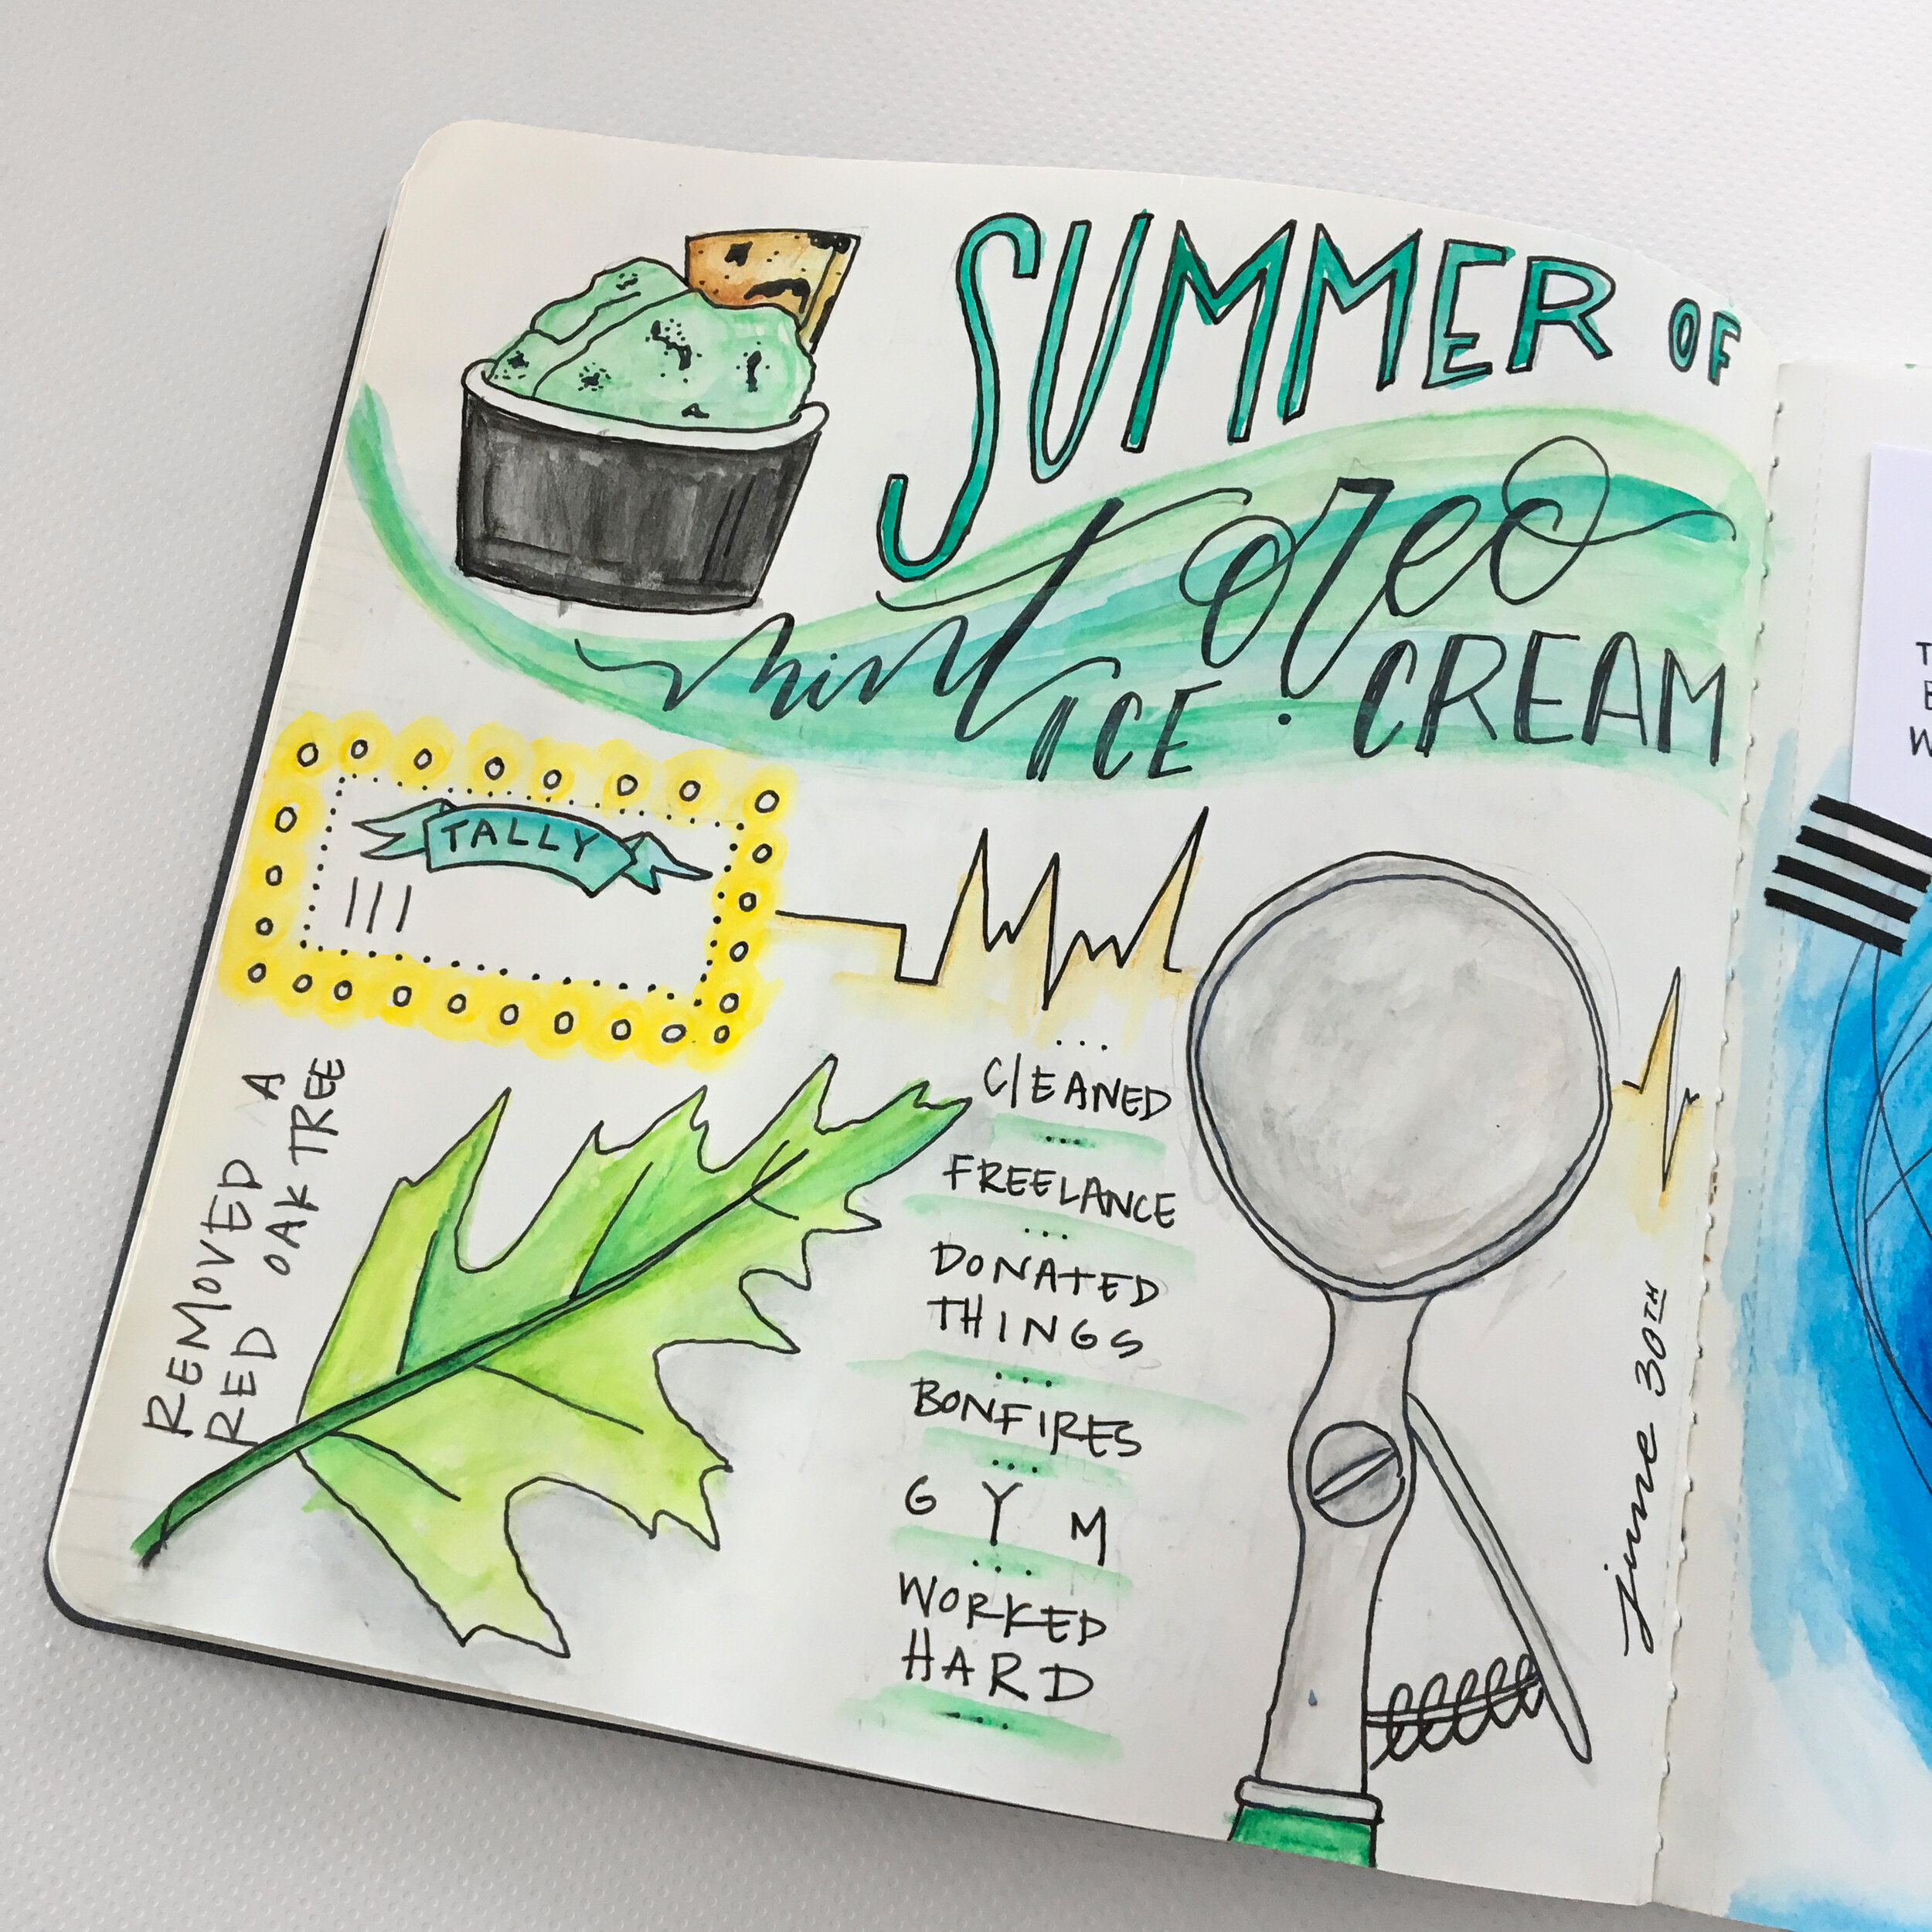 SUMMER OF
mint oreo
ICE · CREAM
TALLY
REMOVED A
RED OAK TREE
CLEANED
FREELANCE
DONATED
THINGS
BONFIRES
GYM
WORKED
HARD
june 30TH